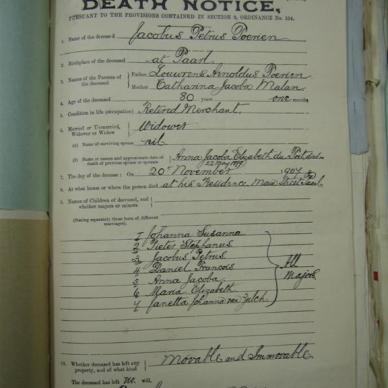 DEATH NOTICE,
PURSUANT TO THE PROVISIONS CONTAINED IN SECTION 9, ORDINANCE No. 104.
1. Name of the deceased Jacobus Petrus
2. Birthplace of the deceased at Paarl
3. Names of the Parents of the deceased
Father Arnoldus
Mother Catharina Jacoba Malan
4. Age of the deceased 80 years one months
5. Condition in life (occupation) Retired Merchant.
6. Married or Unmarried, Widower or Widow Widower
(a) Name of surviving spouse nil
(b) Name or names and approximate date of death of previous spouse or spouses Anna Jacoba Elizabeth
7. The day of the decease: On 20 November 1904
8. At what house or where the person died at his Residence, Main Street
9. Names of Children of deceased, and whether majors or minors
(Stating separately those born of different marriages)
1 Johanna Susanna
2 Pieter Stephanus
3 Jacobus Petrus
4 Daniel Francois
5 Anna Jacoba
6 Maria Elizabeth
7 Johanna van
All Majors
10. Whether deceased has left any property, and of what kind Movable and Immovable
The deceased has left will.